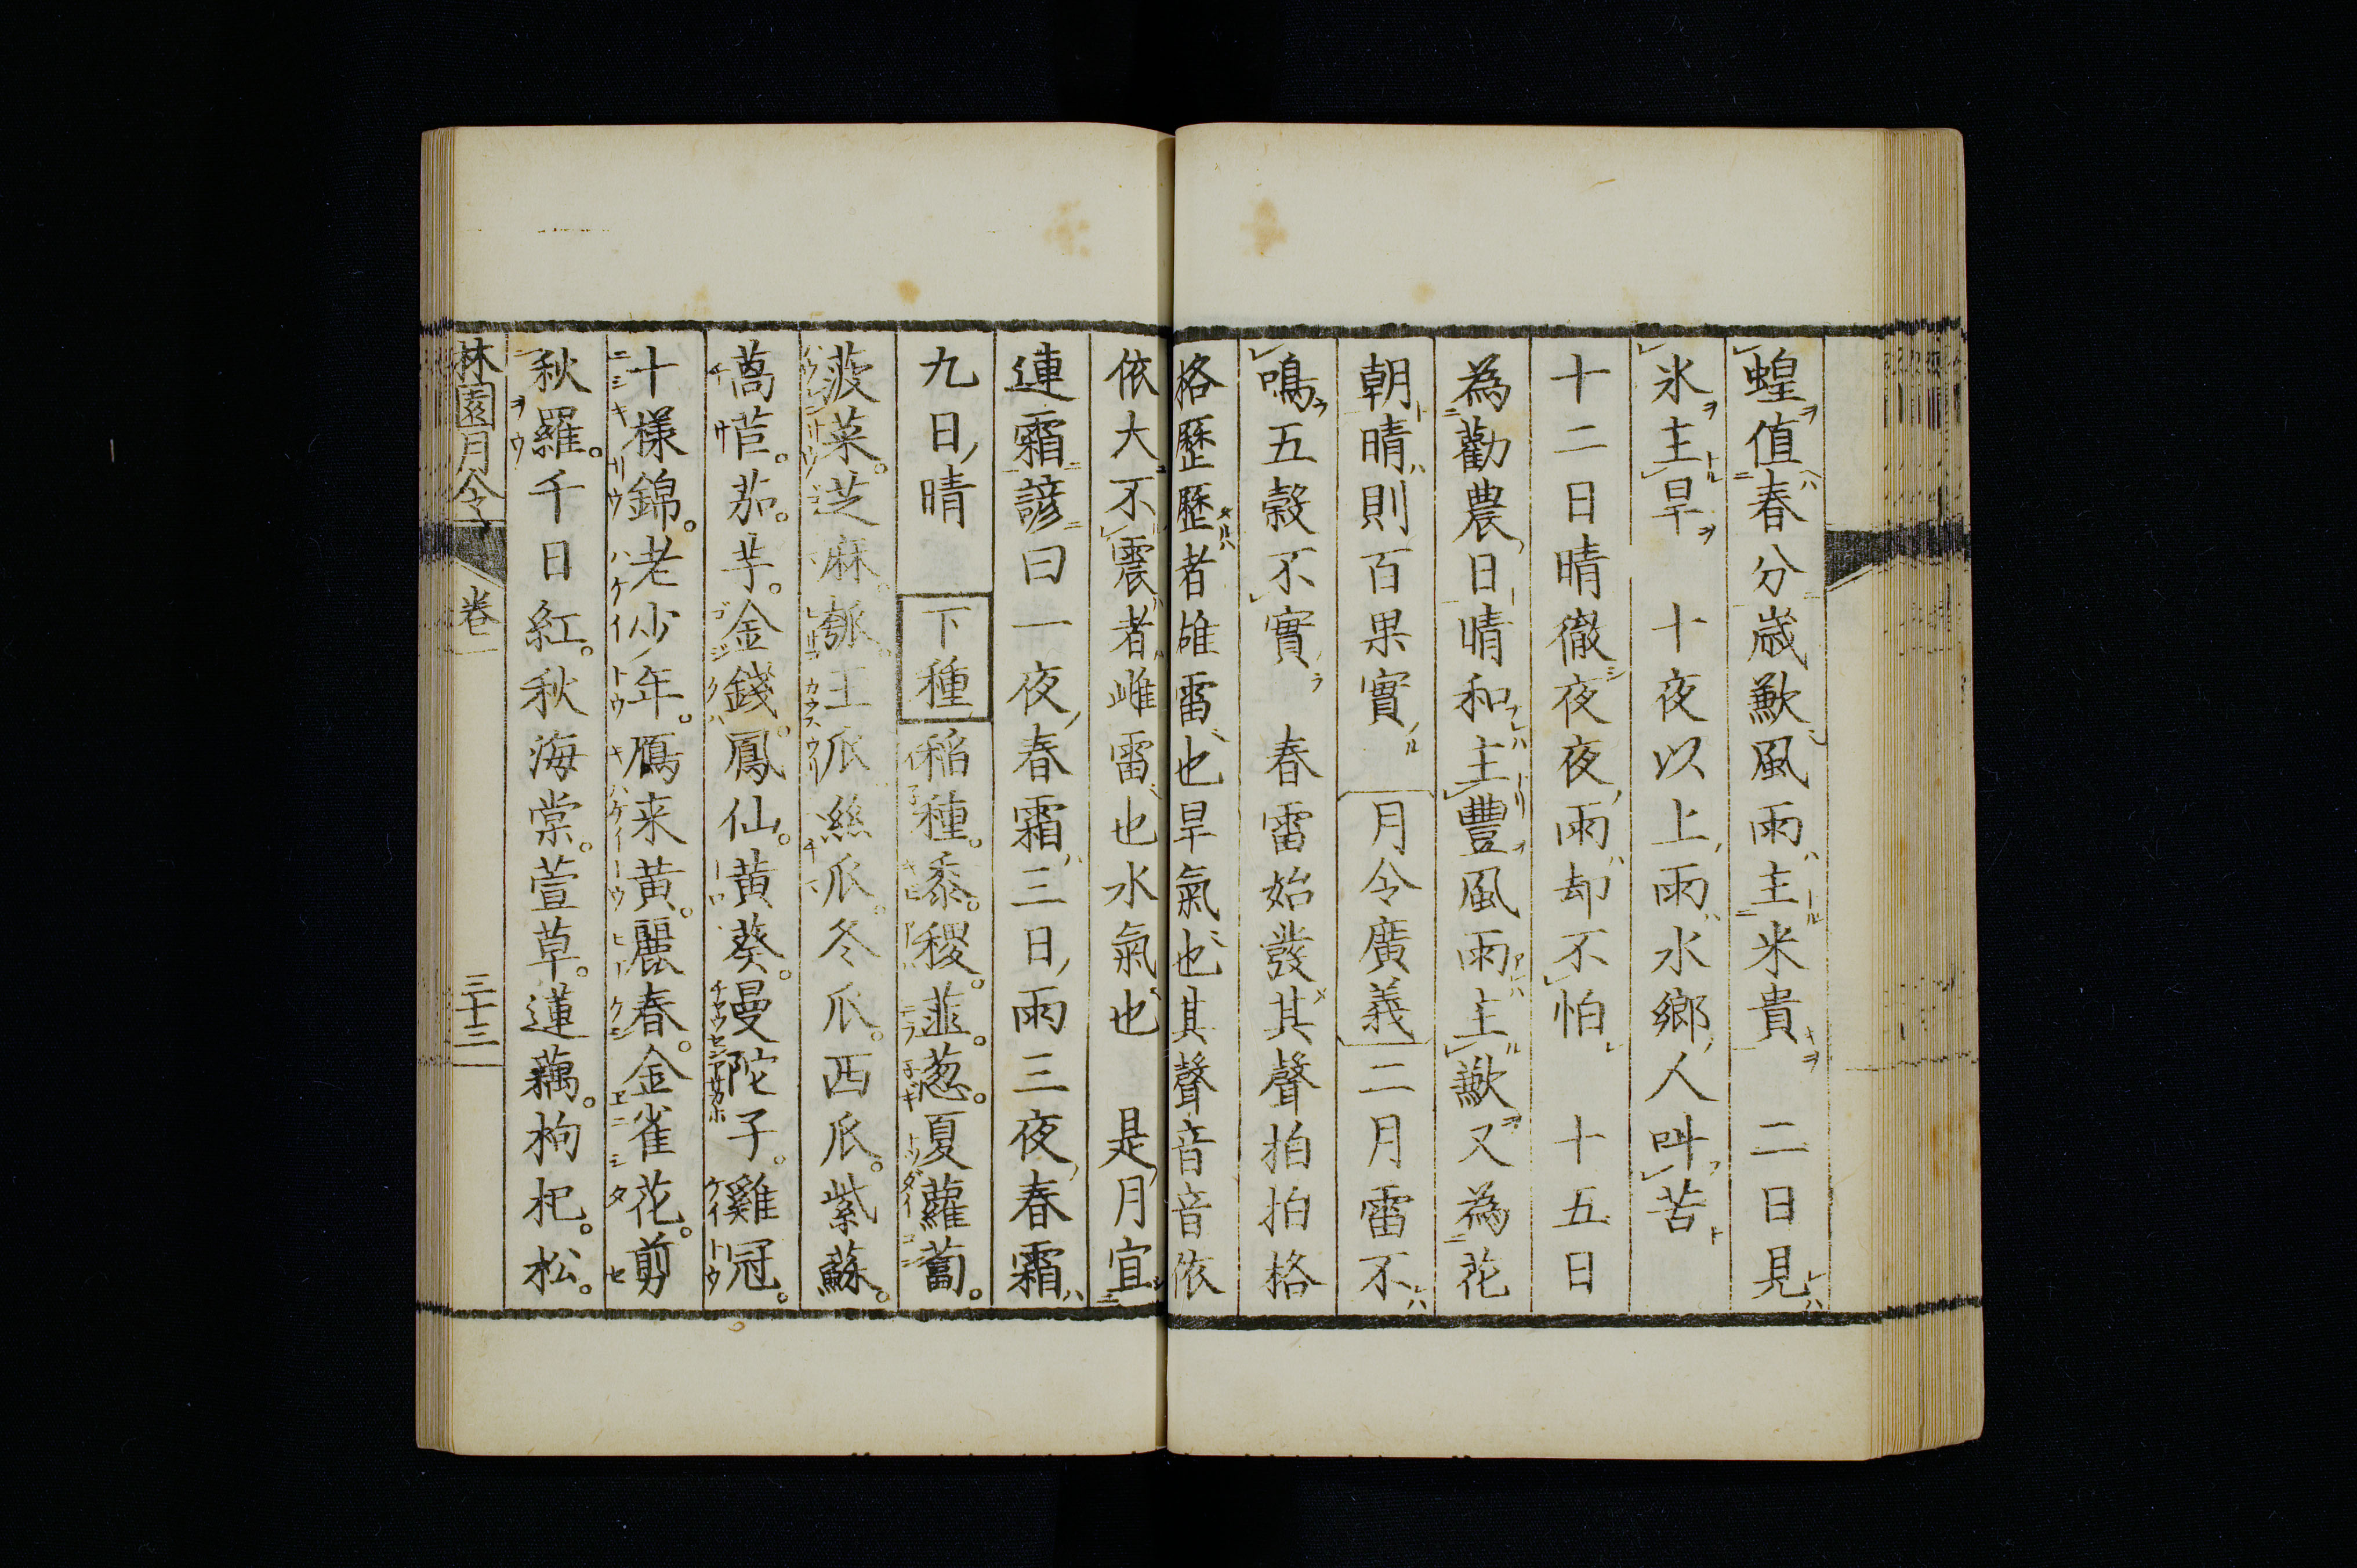 蝗値春分歳歉風雨主米貴　二日見
氷主旱　十夜以上雨水郷人叫苦
十二日晴徹夜夜雨却不怕　十五日
為勸農日晴和主豐風雨主歉又為花
朝晴則百果實　月令廣義二月雷不
鳴五穀不實　春雷始發其聲拍拍格
格歷歷者雄雷也旱氣也其聲音音依
依大不震者雌雷也水氣也　是月宜
連霜諺曰一夜春霜三日雨三夜春霜
九日晴　下種　稲種。黍。稷。韮。葱。夏蘿蔔。
菠菜。芝麻。瓠。王瓜　絲瓜。冬瓜。西瓜。紫蘇。
萵苣。茄。芋。金錢。鳳仙。黄葵。曼陀子。雞冠。
十樣錦。老少年。鴈来黄。麗春。金雀花。剪
秋羅。千日紅。秋海棠。萱草。蓮藕。枸杞。松。
林園月令　卷一　三十三